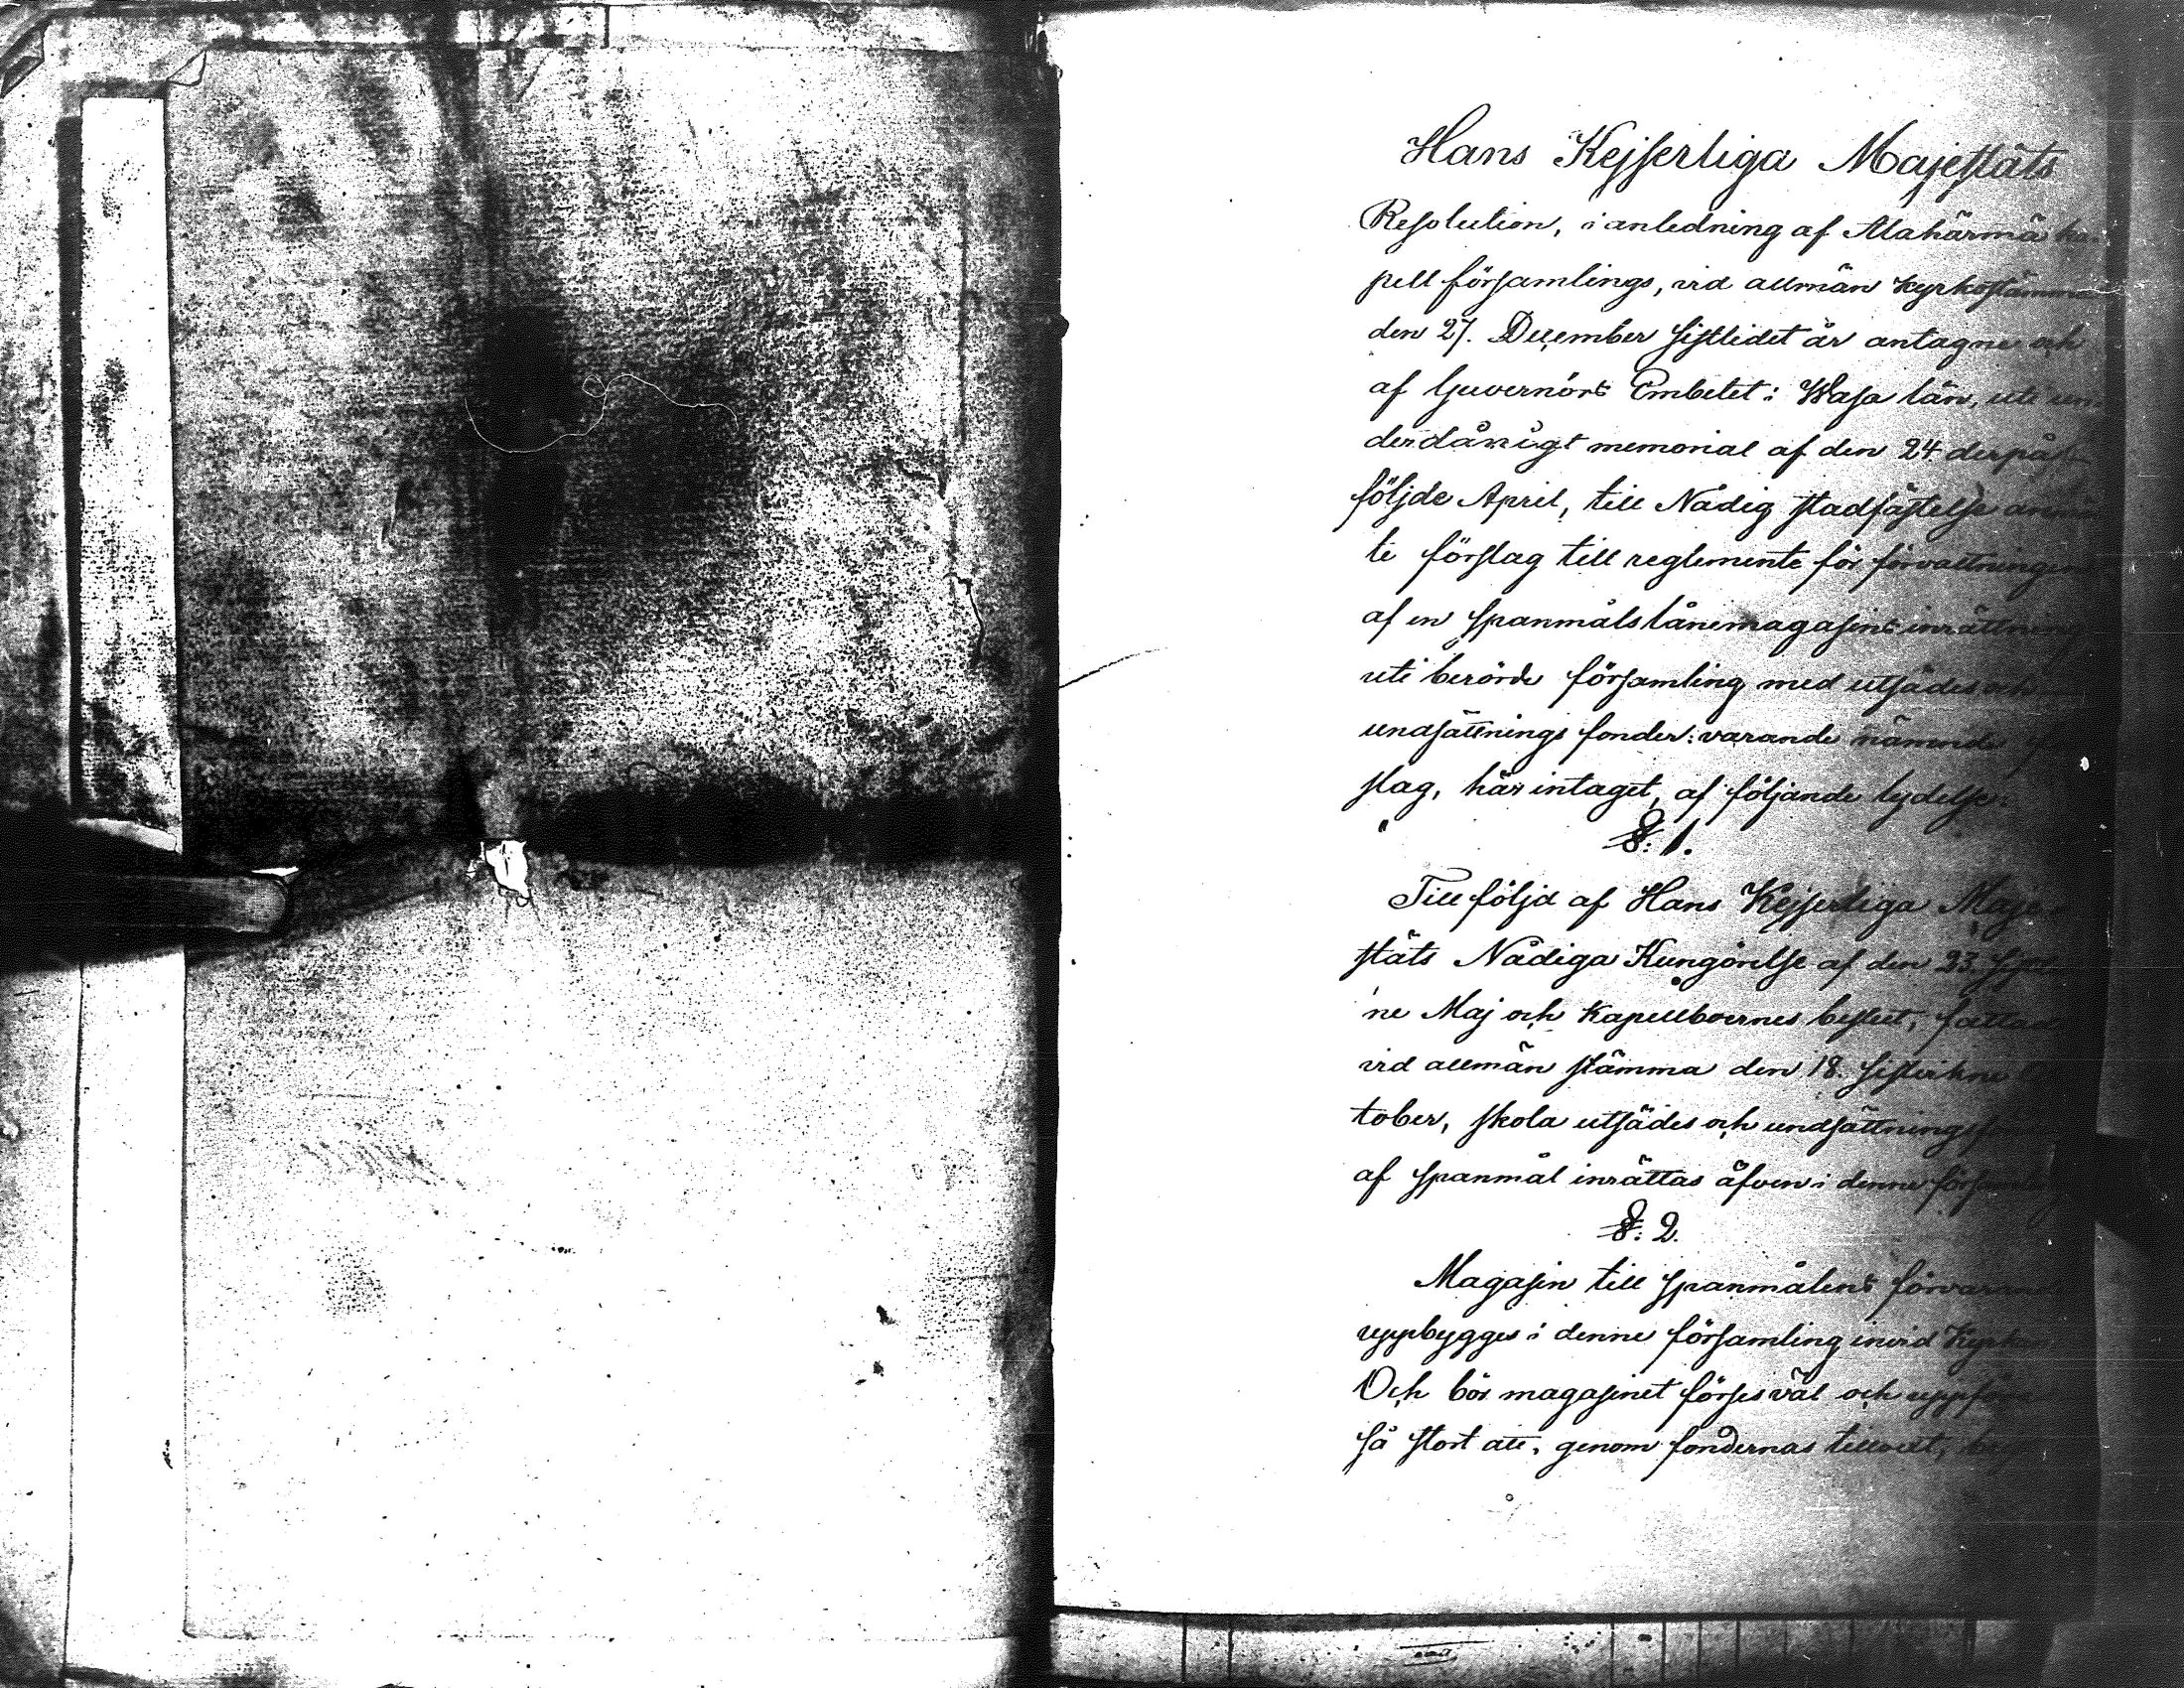 Hans Kejserliga Majestäts
Resolution, i anledning af Alahärmä ka-
pell församlings, vid allmän kyrkostämma
den 27. December sistlidet år antagne och
af Guvernörs Embetet i Wasa län, uti un-
derdånigt memorial af den 24 derpå
följde April, till Nådig stadfästelse
te förslag till reglemente för förvaltningen
af en spanmåls lånemagasins inrättning
uti berörde församling med utsädes och
undsättnings fonder: varande nämnde
slag, här intaget, af följande lydelse:
§: 1.
Till följd af Hans Kejserliga Maje-
stäts Nådiga Kungörelse af den 23.
ne Maj och Kapellboernes beslut, fattadt
vid allmän stämma den 18. sistvikne
tober, skola utsädes och undsättnings
af spanmål inrättas äfven i denne församling
§: 2.
Magasin till spanmålens förvarande
uppbygges i denne församling invid Kyrkan.
Och bör magasinet förses väl och
så stort att, genom fondernas tillvext,